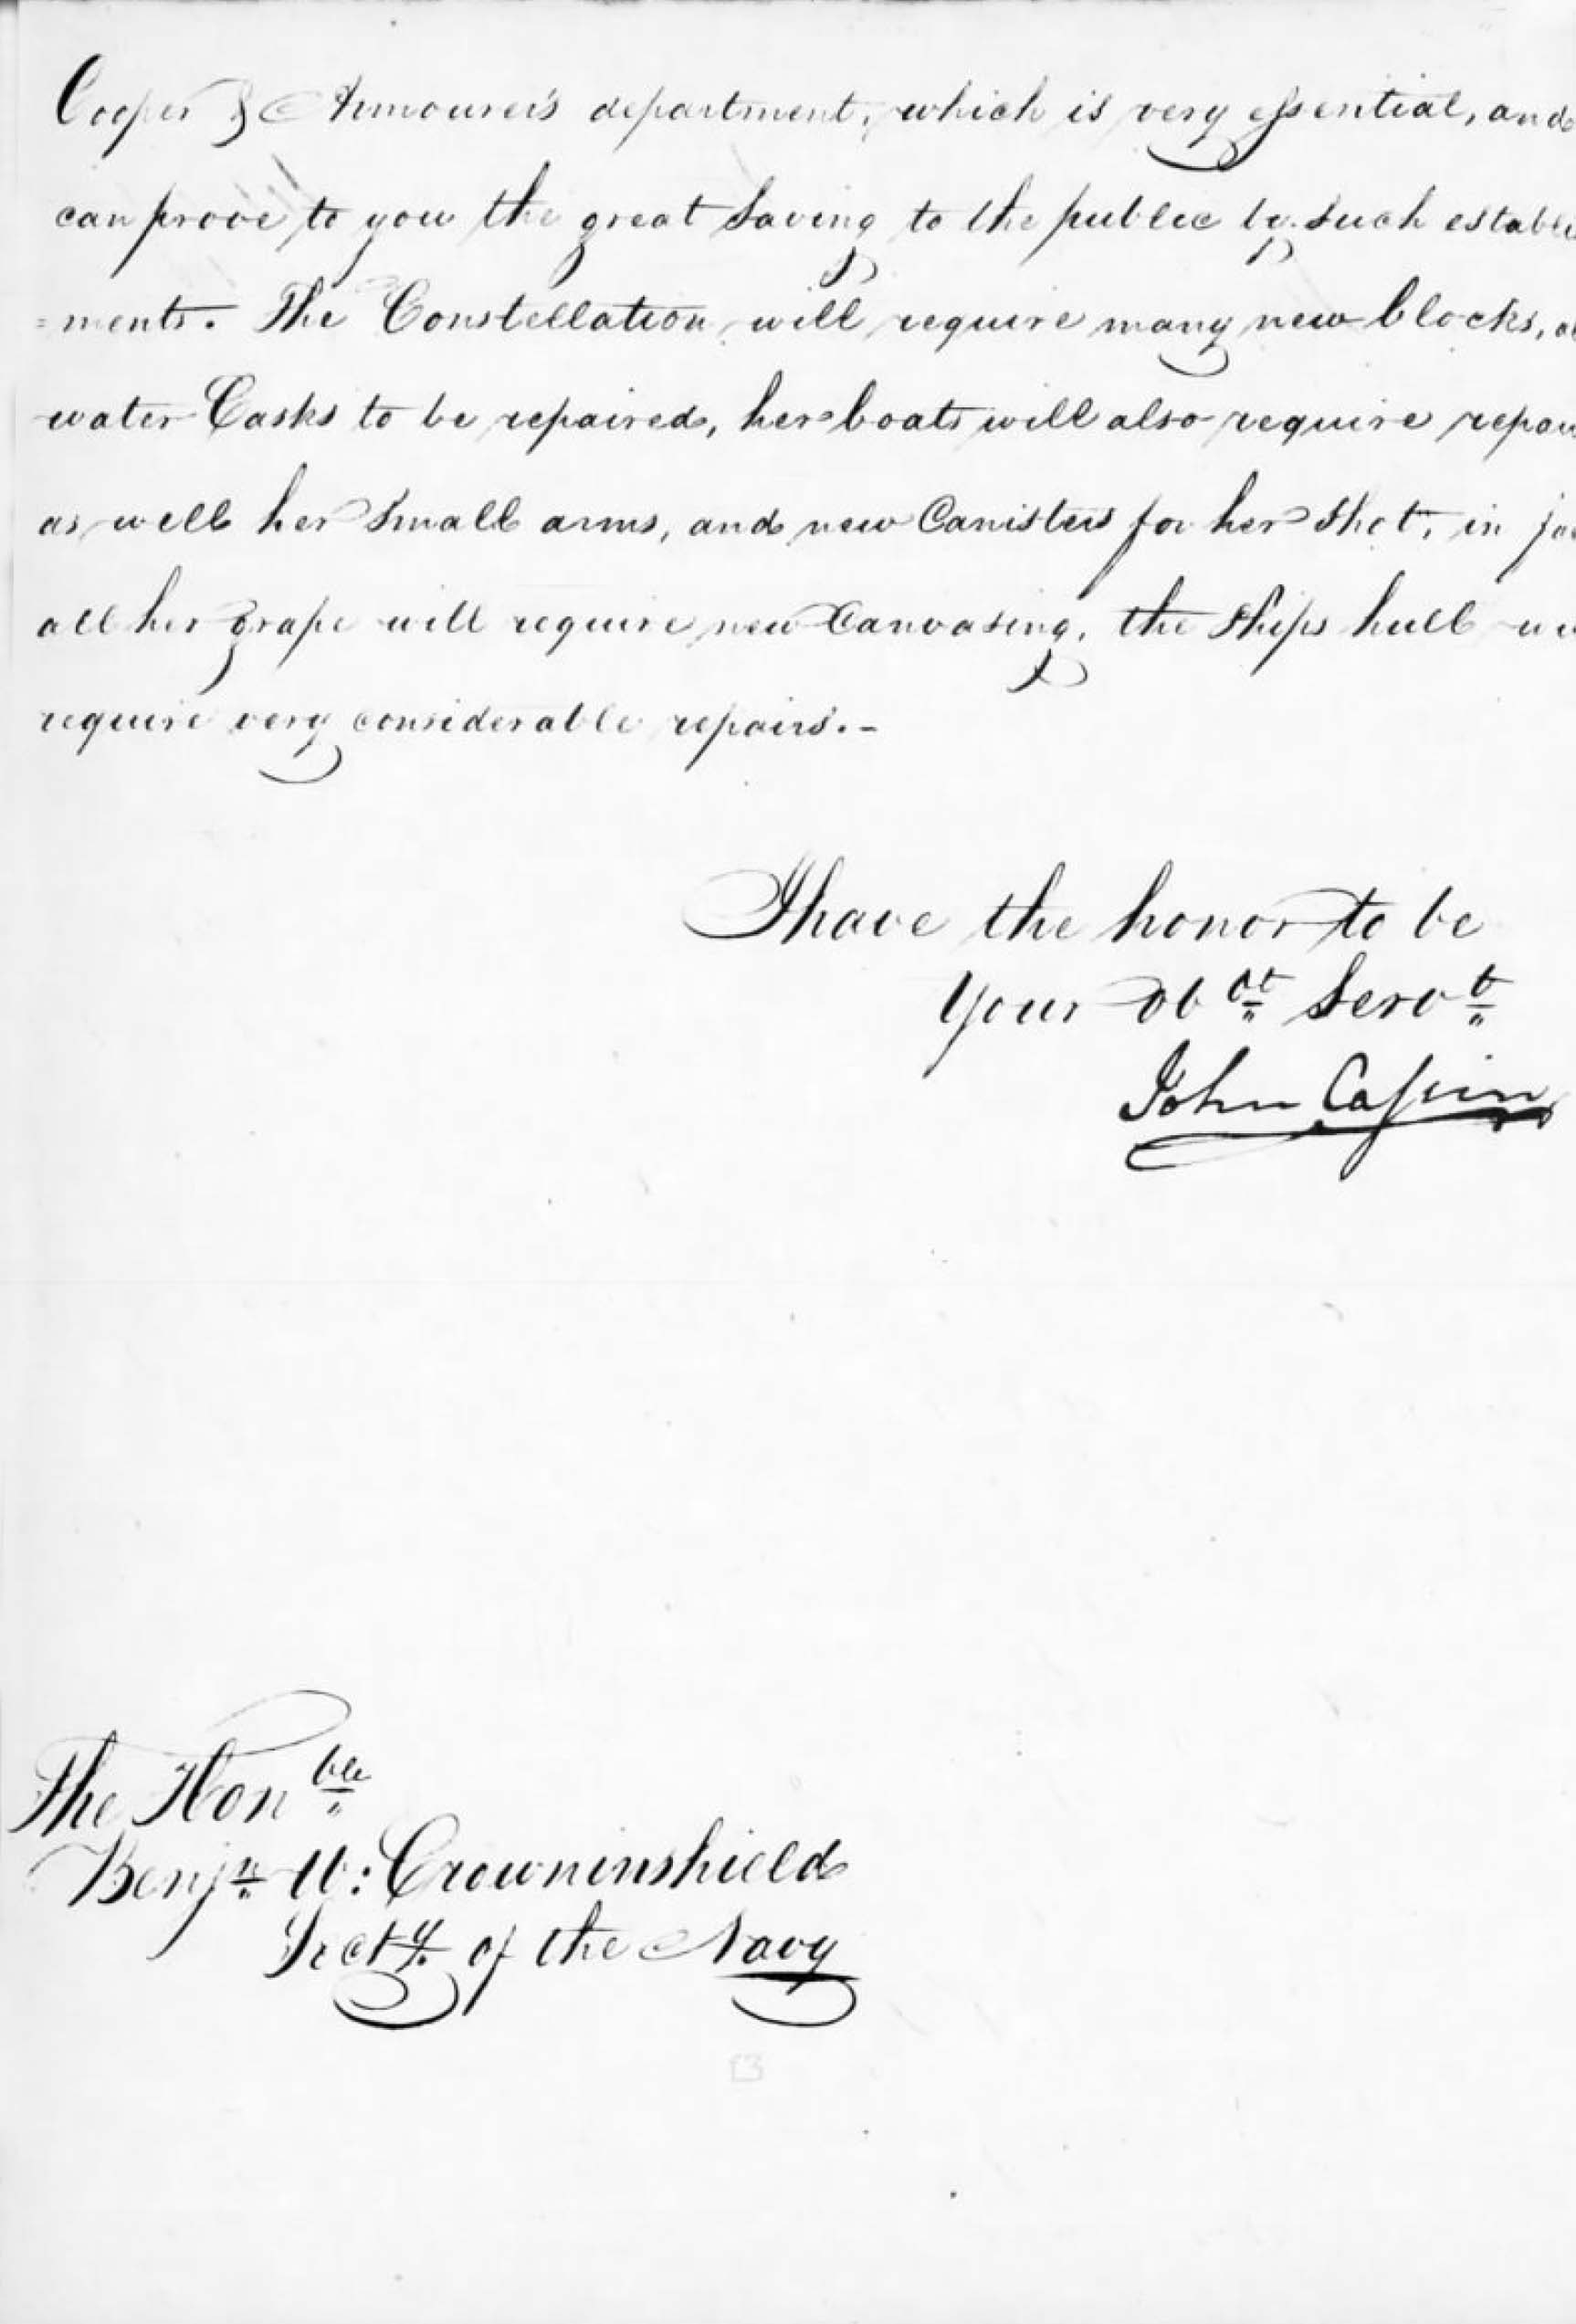 Cooper & Armourer's department, which is very essential, and
can prove to you the great Saving to the public by Such establi
=ments. The Constellation will require many new blocks, al
water Casks to be repaired, her boats will also require repai
as well her Small arms, and new Canisters for her Shot, in fac
all her grape will require new Canvasing, the Ships hull
require very considerable repairs.-
I have the honor to be
Your Obet Servt
John Cassin
The Honble
Benjn W: Crowninshield
Secty of the Navy